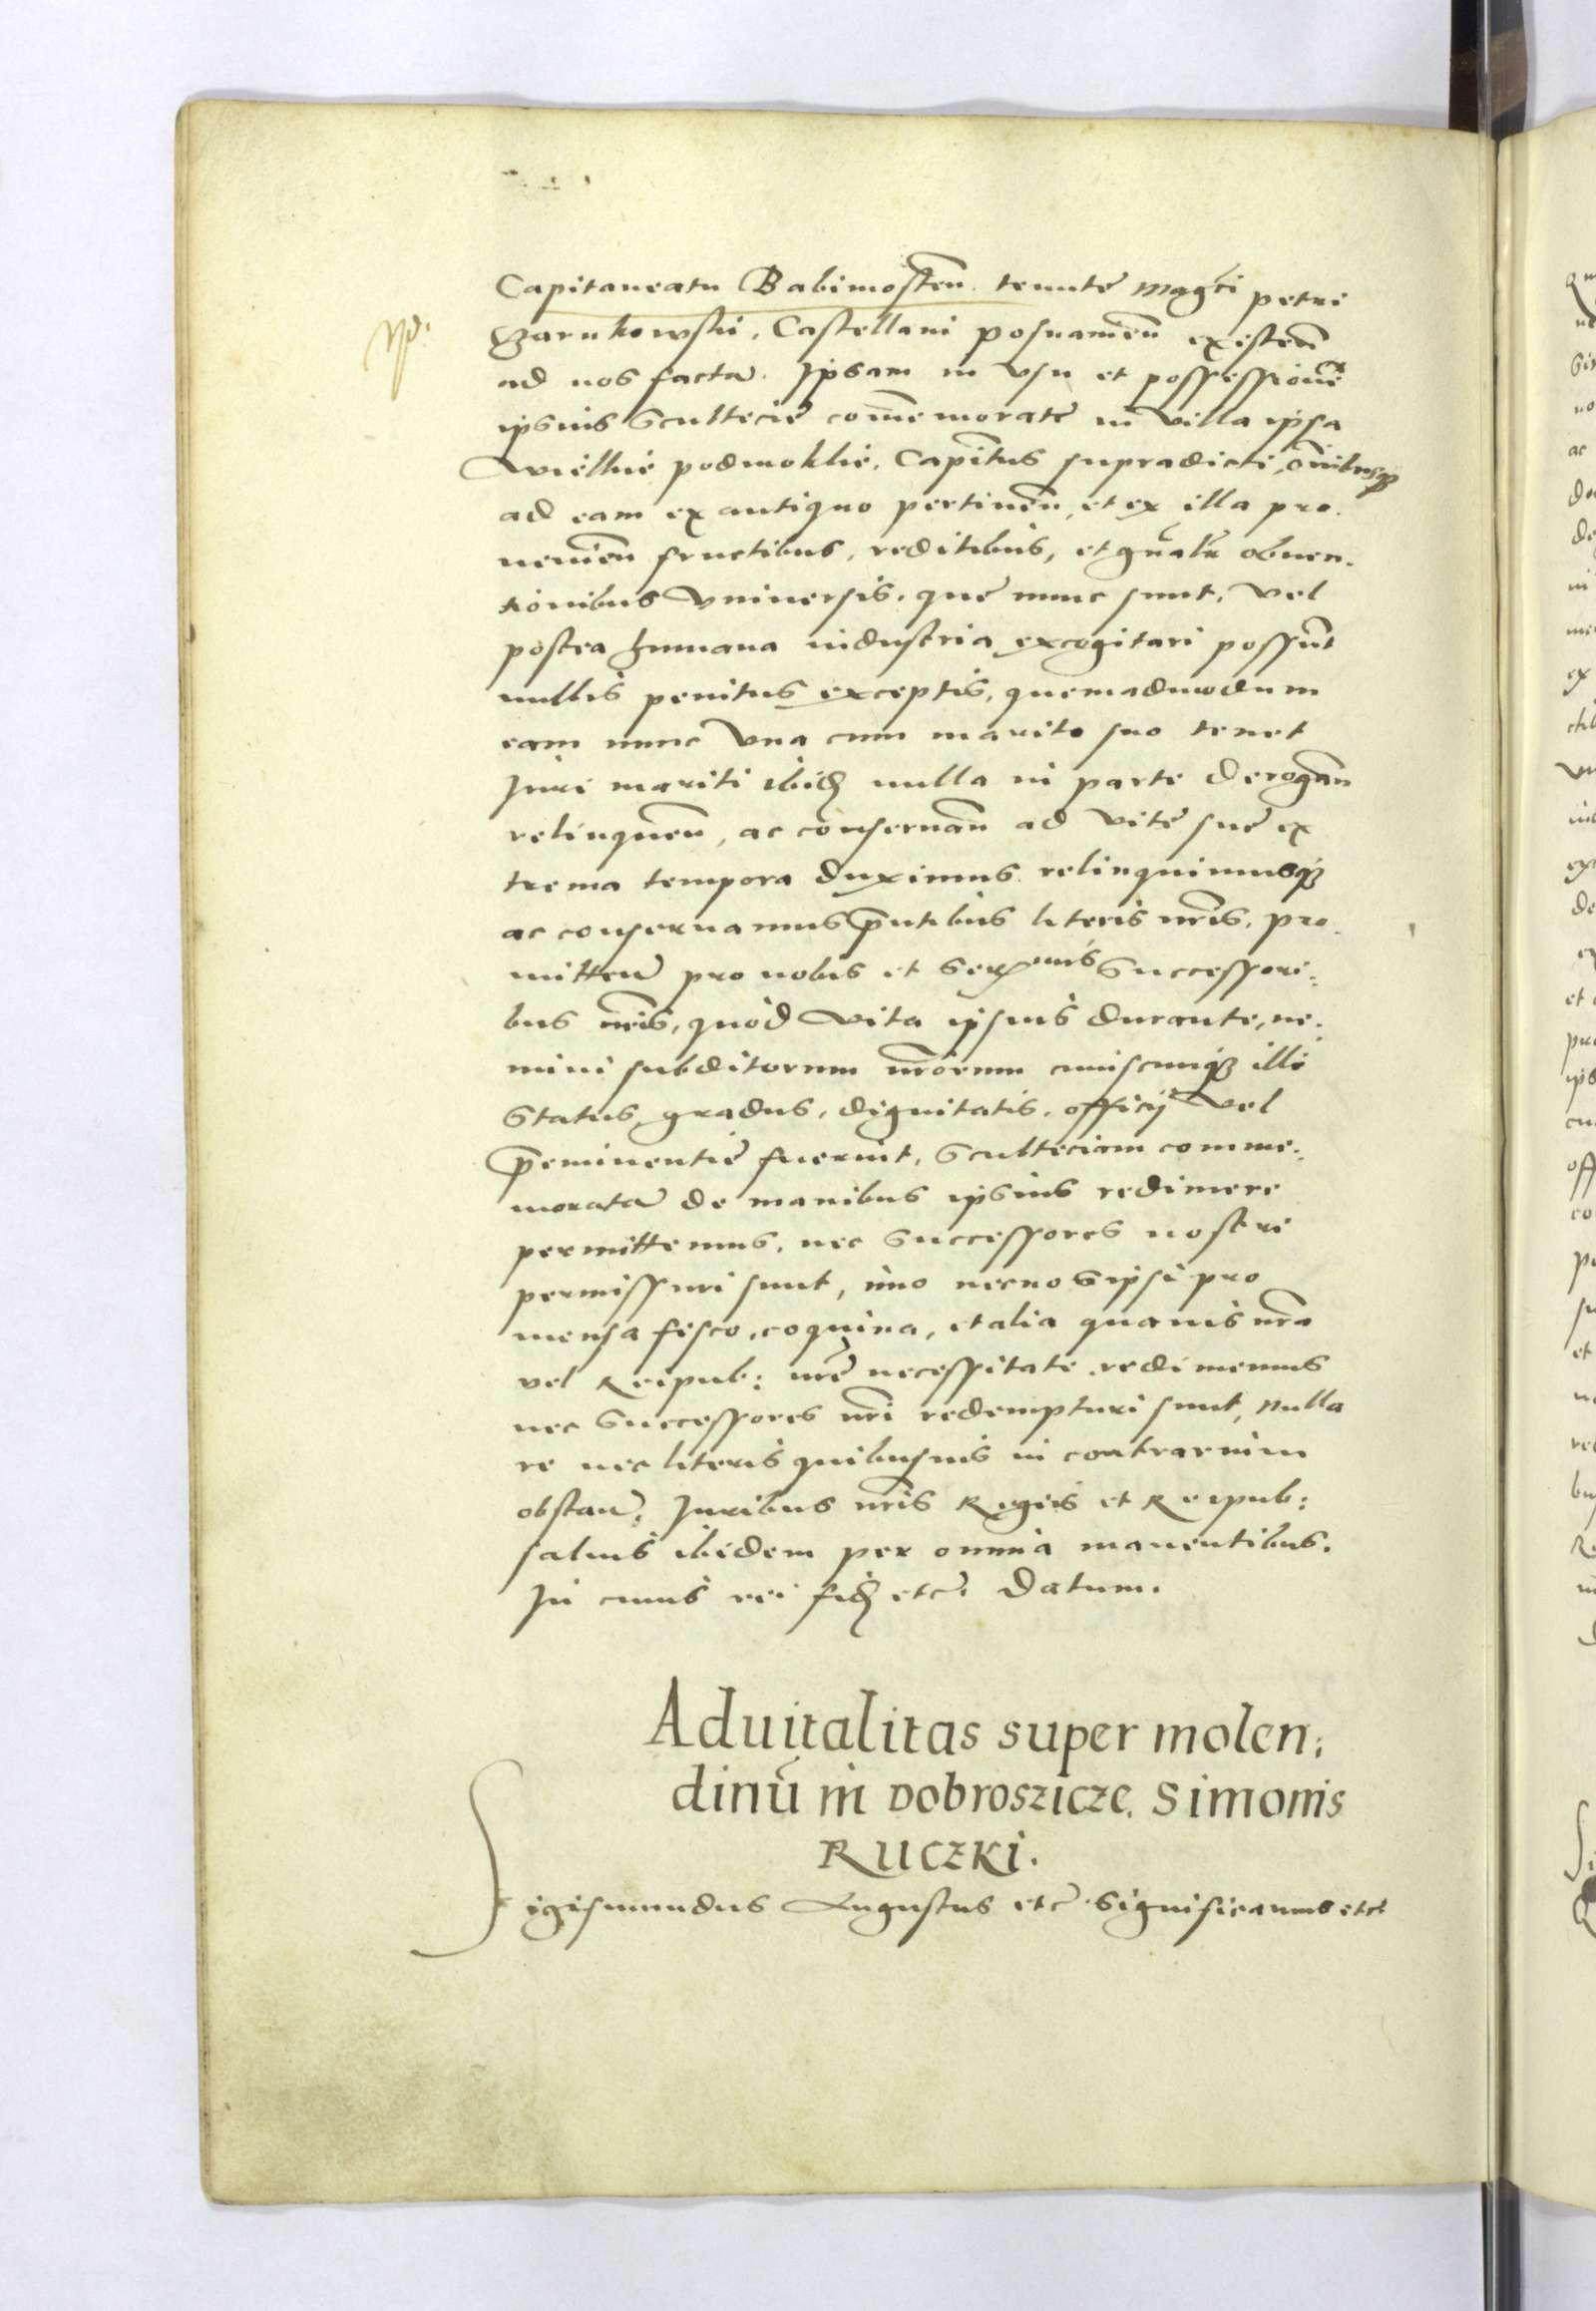 Capitaneatu Babimosteñ. tenute Magci petri
Czarnkowski, Castellani posnanieñ existeñ
ad nos facta. Ipsam in vsu et possessione
ipsius scultecie comemorate in villa ipsa
Wielkie podmoklie, Capitus supradicti, oibusq3
ad eam ex antiquo pertineñ, et ex illa pro.
venieñ fructibus, reditibus, et gnalr obuen.
tionibus vniuersis, que nunc sunt, vel
postea humana industria excogitari possut
nullis penitus exceptis, quemadmodum
eam nunc vna cum marito suo tenet
Juri mariti ibid nulla in parte derogañ
relinqueñ, ac conseruañ ad vite sue ex
trema tempora duximus. relinquimusq3
ac conseruamus pntibus literis nris, pro.
mitteñ pro nobis et Sermis Successori:
bus nris, quod vita ipsius durante, ne:
mini subditorum nrorum cuiuscunq3 illi
status, gradus, dignitatis, officij vel
preminentie fuerint, sculteciam comme:
morata de manibus ipsius redimere
permittemus, nec successores nostri
permissuri sunt, imo nec nos ipsi pro
mensa fisco, coquina, et alia quauis nra
vel Reipub: nre necessitate redimemus
nec Successores nri redempturi sunt, Nulla
re nec literis quibusuis in contrarium
obstañ, Juribus nris Regiis et Reipub:
saluis ibidem per omnia manentibus.
In cuius rei fid etc. Datum.
Aduitalitas super molen:
dinu in Dobroszicze, Simonis
RUCZKI.
Sigismundus Augustus etc Significamus etc